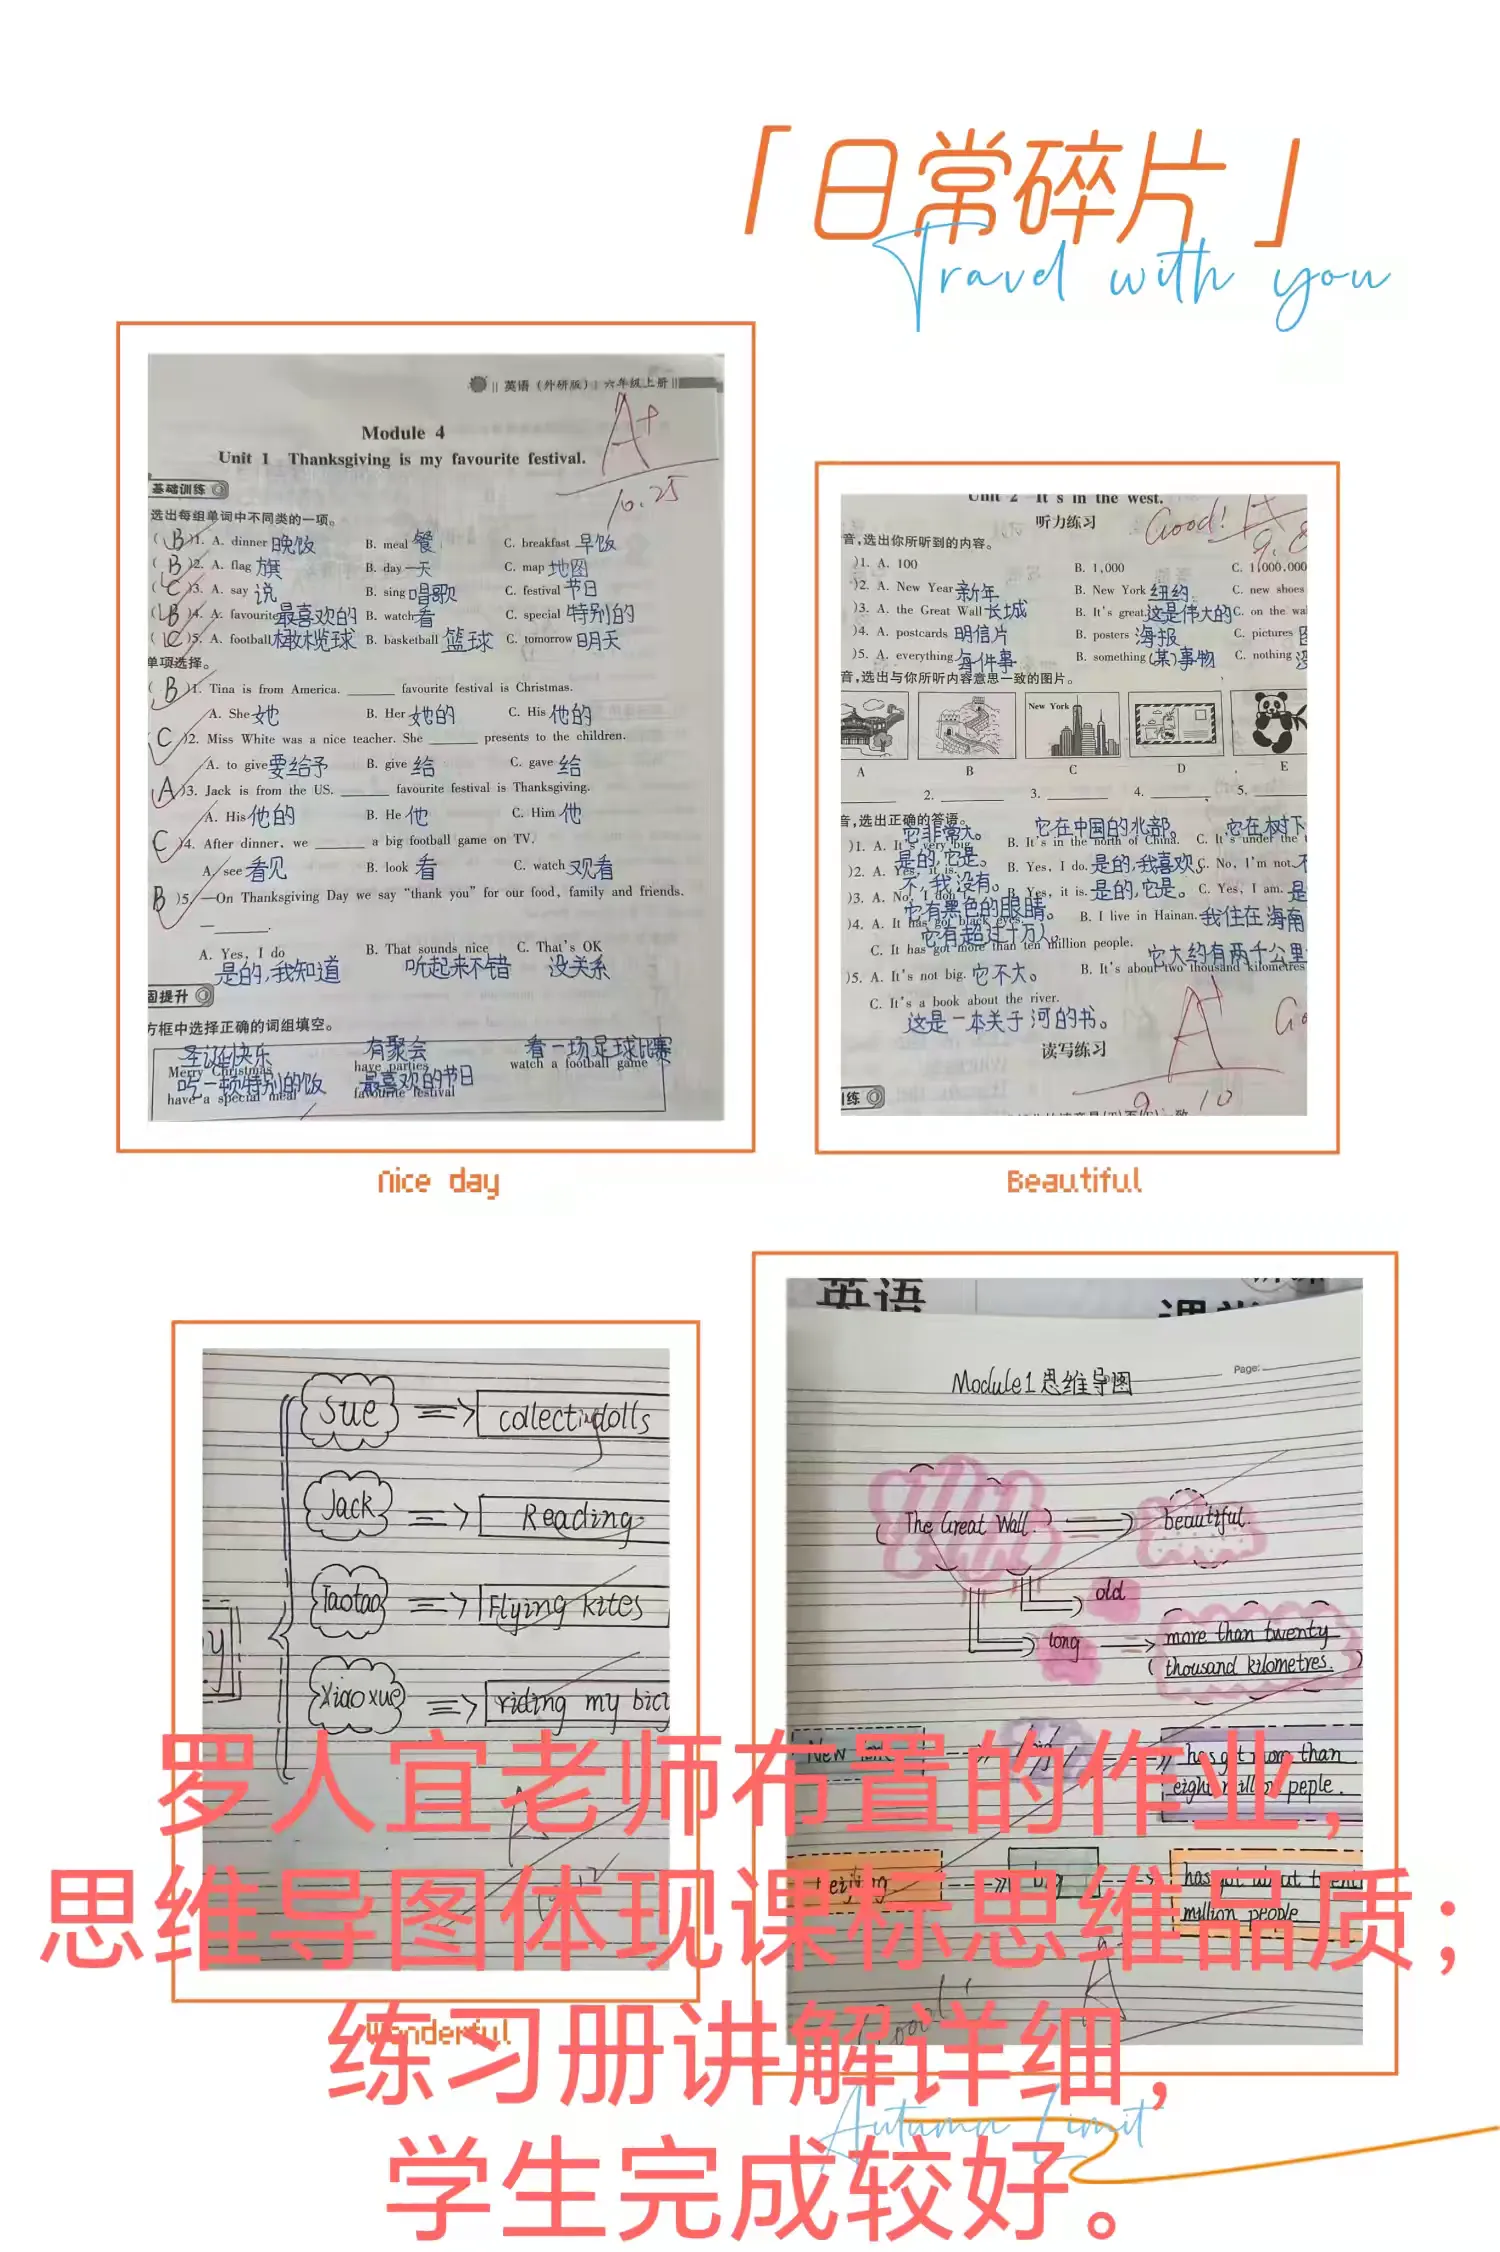 「日常碎片」
Travel with you
英语（外研版）| 六年级上册
Module 4
Unit 1 Thanksgiving is my favourite festival.
A+
10.25
基础训练
选出每组单词中不同类的一项。
( B )1. A. dinner 晚饭 B. meal 餐 C. breakfast 早饭
( B )2. A. flag 旗 B. day 一天 C. map 地图
( C )3. A. say 说 B. sing 唱歌 C. festival 节日
( B )4. A. favourite 最喜欢的 B. watch 看 C. special 特别的
( C )5. A. football 橄榄球 B. basketball 篮球 C. tomorrow 明天
单项选择。
( B )1. Tina is from America. ______ favourite festival is Christmas.
A. She 她 B. Her 她的 C. His 他的
C )2. Miss White was a nice teacher. She ______ presents to the children.
A. to give 要给予 B. give 给 C. gave 给
A )3. Jack is from the US. ______ favourite festival is Thanksgiving.
A. His 他的 B. He 他 C. Him 他
C )4. After dinner, we ______ a big football game on TV.
A. see 看见 B. look 看 C. watch 观看
B )5. —On Thanksgiving Day we say “thank you” for our food, family and friends.
—______.
A. Yes, I do B. That sounds nice C. That's OK
是的,我知道 听起来不错 没关系
固提升
方框中选择正确的词组填空。
圣诞快乐 有聚会 看一场足球比赛
Merry Christmas have parties watch a football game
吃一顿特别的饭 最喜欢的节日
have a special meal favourite festival
Nice day
Unit 2 It's in the west.
听力练习
Good! A
音,选出你所听到的内容。
)1. A. 100 B. 1,000 C. 1,000,000
)2. A. New Year 新年 B. New York 纽约 C. new shoes
)3. A. the Great Wall 长城 B. It's great. 这是伟大的 C. on the wa
)4. A. postcards 明信片 B. posters 海报 C. pictures
)5. A. everything 每件事 B. something (某)事物 C. nothing
音,选出与你所听内容意思一致的图片。
New York
A B C D E
______ 2. ______ 3. ______ 4. ______ 5.
音,选出正确的答语。
它非常大。 它在中国的北部。 它在树下
)1. A. It's very big. B. It's in the north of China. C. It's under the
是的,它是。
)2. A. Yes, it is. B. Yes, I do. 是的,我喜欢 C. No, I'm not. 不
不,我没有。
)3. A. No, I don't. B. Yes, it is. 是的,它是。 C. Yes, I am. 是
它有黑色的眼睛。
)4. A. It has got black eyes. B. I live in Hainan. 我住在海南
它有超过十万人。
C. It has got more than ten million people.
它大约有两千公里
)5. A. It's not big. 它不大。 B. It's about two thousand kilometres
C. It's a book about the river.
这是一本关于河的书。
A+
读写练习
9 10
训练
Beautiful
Sue collecting dolls
Jack Reading
Taotao Flying kites
Xiaoxue riding my bicy
y
Wonderful
英语
Page:
Module1思维导图
The Great Wall. beautiful.
old
long more than twenty
thousand kilometres.
New big has got more than
eight million peple.
Beijing big has got about twenty
million people
A
Good!
罗人宜老师布置的作业，
思维导图体现课标思维品质；
练习册讲解详细，
学生完成较好。
Autumn Limit